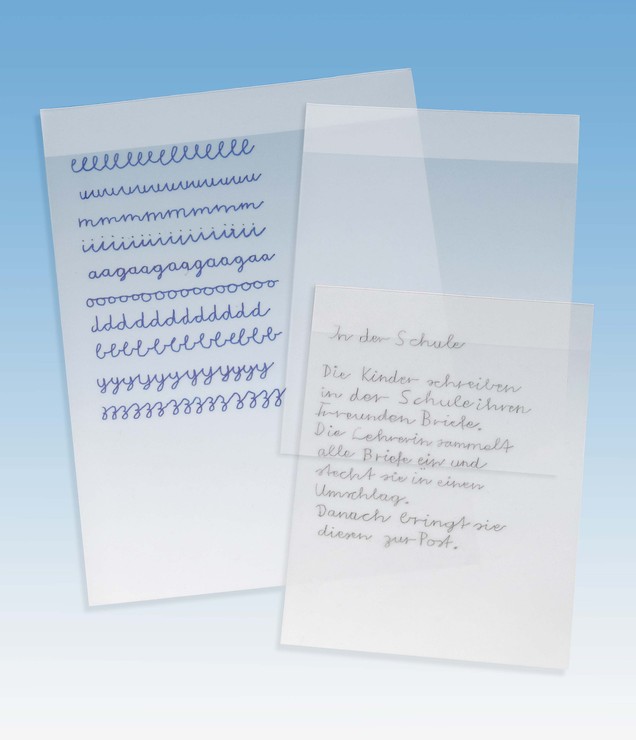 eeeeeeeeeeeeeeee
uuuuuuuuuuuuu
mmmmmmmmm
iiiiiiiiiiiiiiii
aagaagaagaagaa
ooooooooooooooo
dddddddddddd
bbbbbbbbbebbb
yyyyyyyyyyyy
zzzzzzzzzzzzz
In der Schule
Die Kinder schreiben
in der Schule ihren
Freunden Briefe.
Die Lehrerin sammelt
alle Briefe ein und
stecht sie in einen
Umschlag.
Danach bringt sie
diesen zur Post.